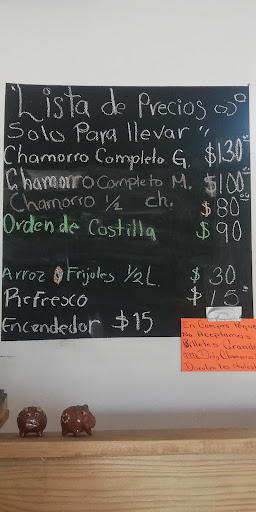 Lista de Precios
Solo Para llevar "
Chamorro Completo G. $130
Chamorro Completo M. $100
Chamorro 1/2 ch. $80
Orden de Costilla $90
Arroz o Frijoles 1/2 L. $30
Refresco $15
Encendedor $15
En Compra
No Aceptamos
Billetes Grandes